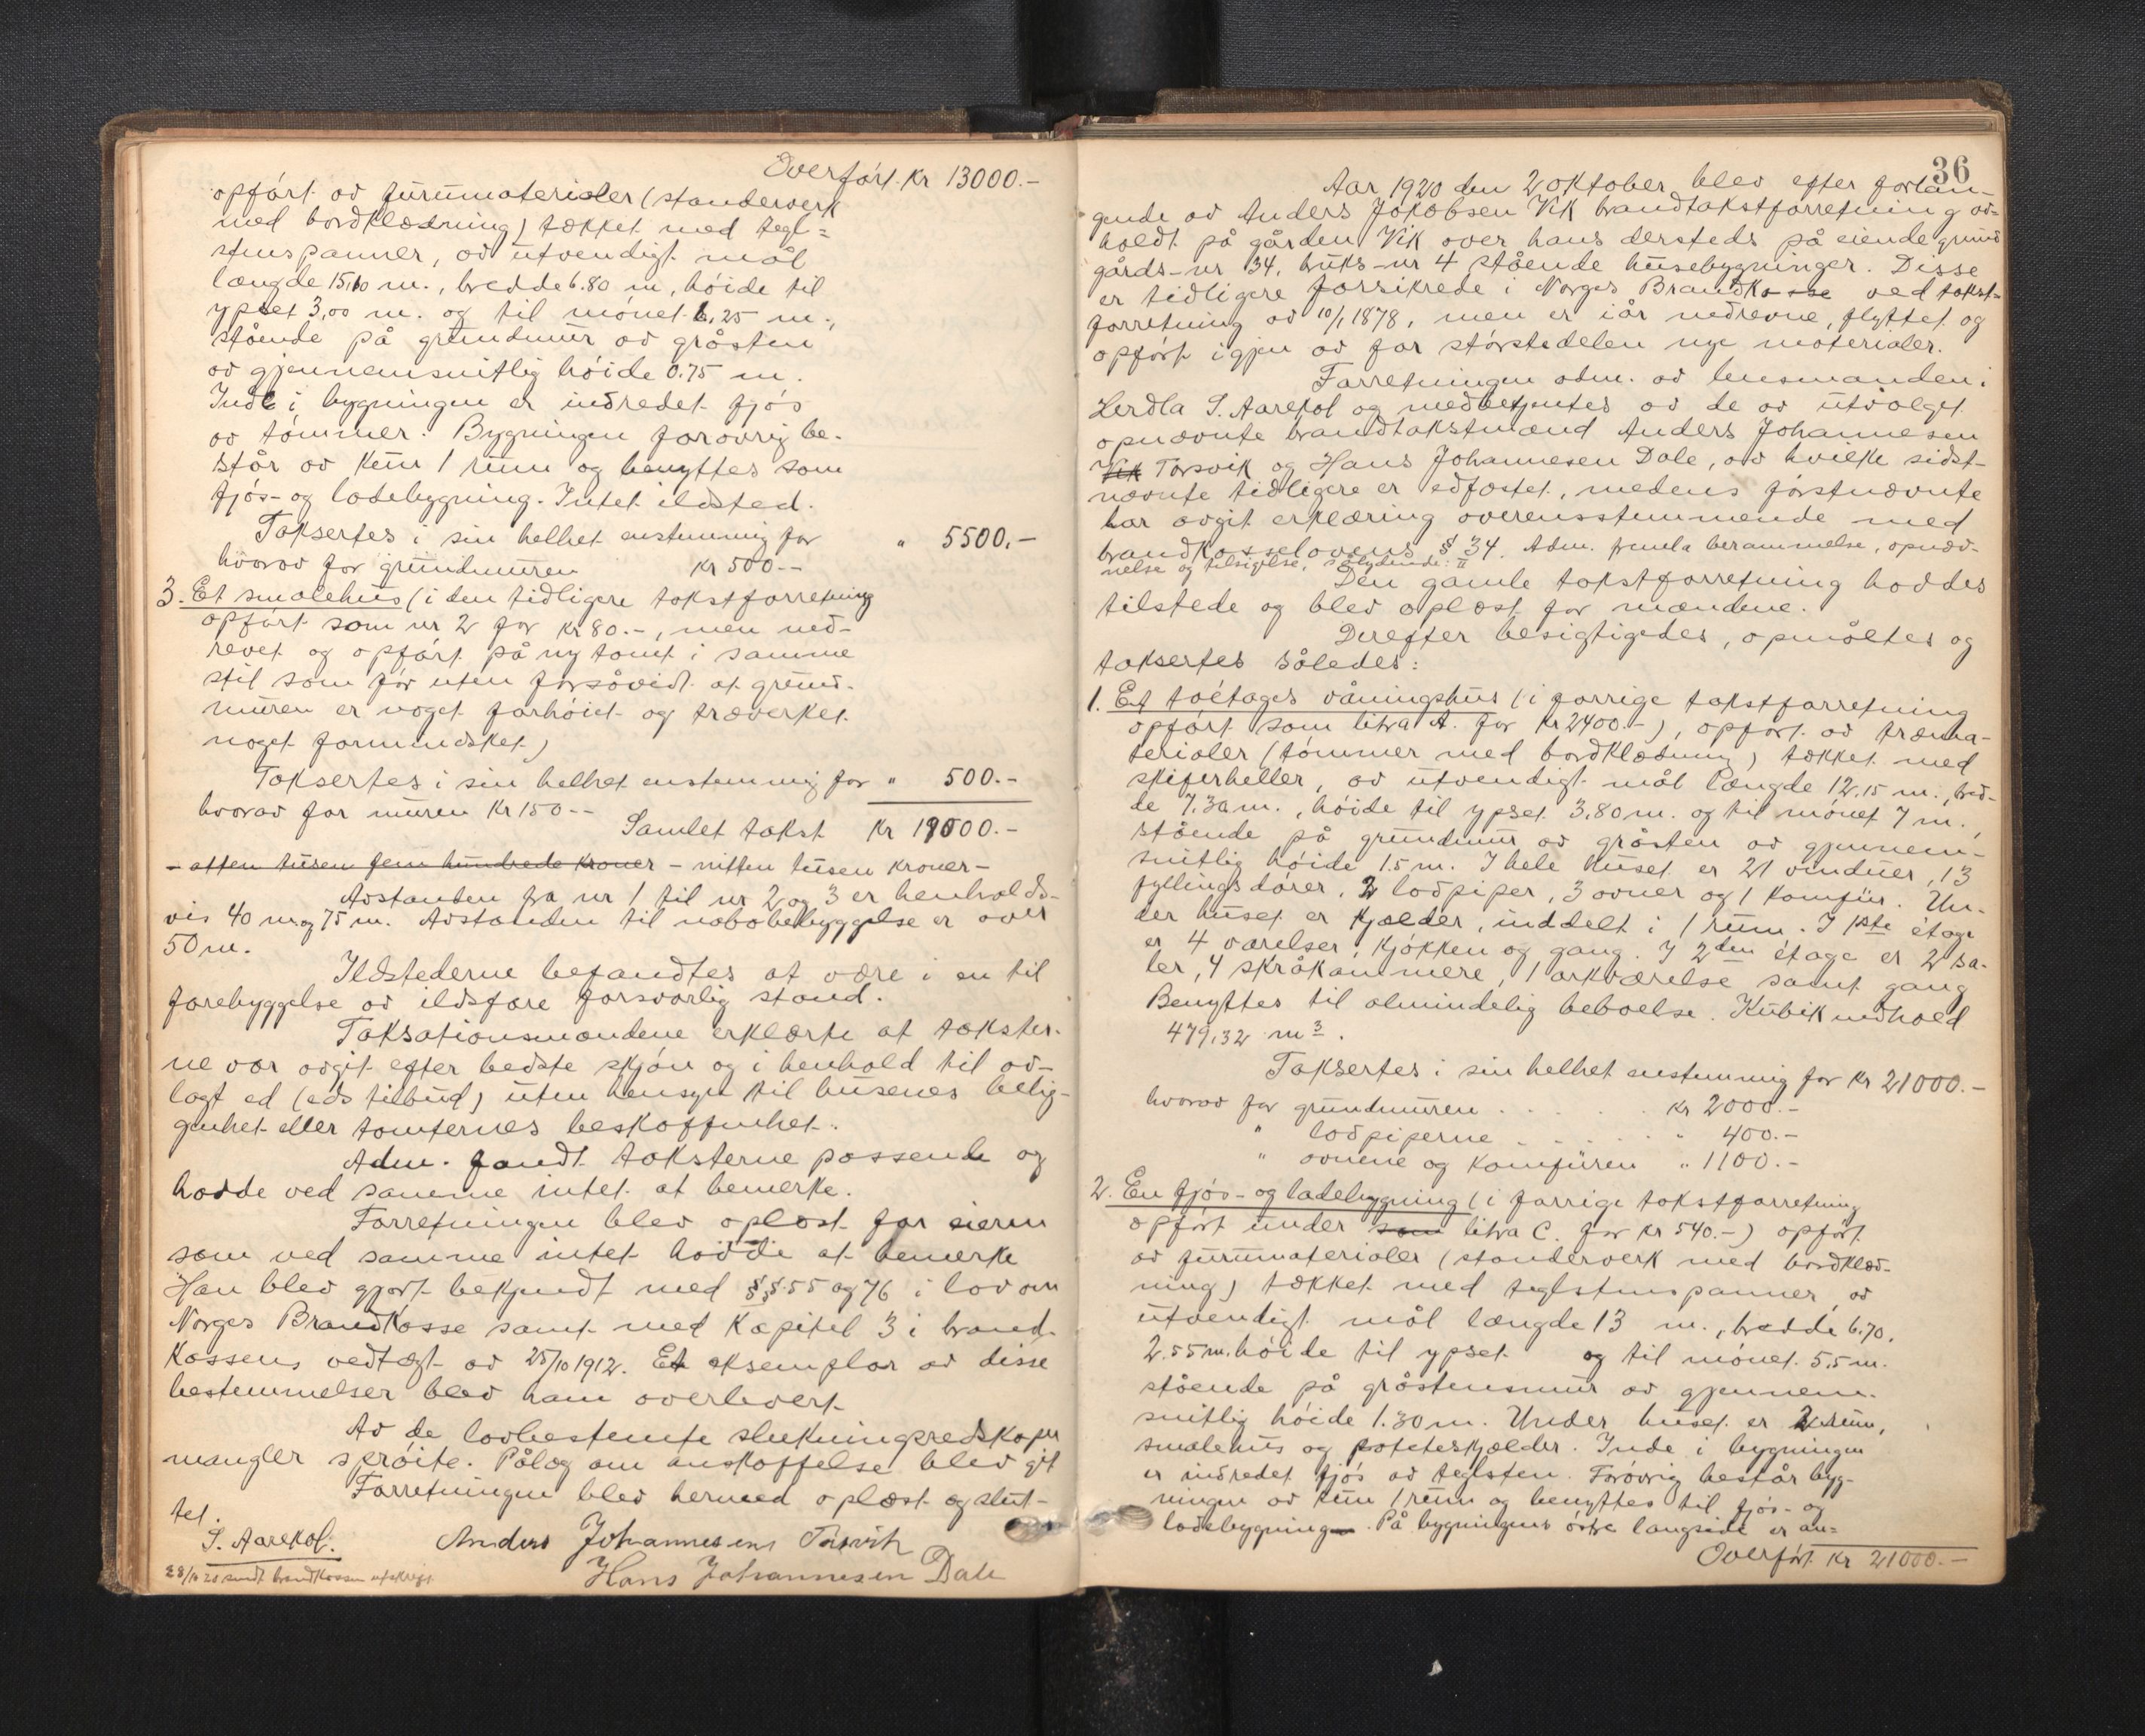 Overført kr 13000.-
opført av furumaterialer (standerverk
med bordklædning) tækket med tegl=
stenspanner, av utvendigt mål
længde 15,10 m., bredde 6.80 m, høide til
ypset 3,00 m. og til mønet 6,25 m.,
stående på grundmur av gråsten
av gjennemsnitlig høide 0.75 m.
Inde i bygningen er indredet fjøs
av tømmer. Bygningen forøvrig be-
står av kun 1 rum og benyttes som
fjøs- og ladebygning. Intet ildsted.
Taksertes i sin helhet enstemmig for " 5500.-
hvorav for grundmuren kr 500--
3. Et smalehus (i den tidligere takstforretning
opført som nr 2 for kr 80.-, men ned-
revet og opført på ny tomt i samme
stil som før uten forsåvidt at grund-
muren er noget forhøiet og træverket
noget formindsket)
Taksertes i sin helhet enstemmig for " 500.-
hvorav for muren kr 150--
Samlet takst kr 19000.-
- atten tusen fem hundrede kroner - nitten tusen kroner-
Avstanden fra nr 1 til nr 2 og 3 er henholds-
vis 40 m og 75 m. Avstanden til nabobebyggelse er over
50 m.
Ildstederne befandtes at være i en til
forebyggelse av ildsfare forsvarlig stand.
Taksationsmændene erklærte at takster-
ne var avgit efter bedste skjøn og i henhold til av-
lagt ed (eds tilbud) uten hensyn til husenes belig-
genhet eller tomternes beskaffenhet.
Adm. fandt taksterne passende og
hadde ved samme intet at bemerke.
Forretningen blev oplæst for eieren
som ved samme intet hadde at bemerke
Han blev gjort bekjendt med §§ 55 og 76 i lov om
Norges Brandkasse samt med kapitel 3 i brand-
kassens vedtægt av 25/10 1912. Et eksemplar av disse
bestemmelser blev ham overlevert.
Av de lovbestemte slukningsredskaper
mangler sprøite. Pålæg om anskaffelse blev git
Forretningen blev hermed oplæst og slut-
tet.
S. Aarekol.
Anders Johannesens Torsvik
Hans Johannesen Dale
28/10 20 sendt brandkassen utskrift
36
Aar 1920 den 2 oktober blev efter forlan-
gende av Anders Jakobsen Vik brandtakstforretning av=
holdt på gården Vik over hans dersteds på eiende grund
gårds-nr 34, bruks-nr 4 stående husebygninger. Disse
er tidligere forsikrede i Norges Brandkasse ved takst=
forretning av 10/1 1878, men er i år nedrevne, flyttet og
opført igjen av for størstedelen nye materialer.
Forretningen adm. av lensmanden i
Herdla S. Aarekol og medbetjentes av de av utvalget
opnævnte brandtakstmænd Anders Johannesen
Vik Torsvik og Hans Johannesen Dale, av hvilke sidst-
nævnte tidligere er edfæstet, medens førstnævnte
har avgit erklæring overensstemmende med
brandkasselovens § 34. Adm. fremla berammelse, opnæv-
nelse og tilsigelse, sålydende: "
Den gamle takstforretning haddes
tilstede og blev oplæst for mændene.
Derefter besigtigedes, opmåltes og
taksertes således:
1. Et toétages våningshus (i forrige takstforretning
opført som litra A. for kr 2400.-), opført av træma-
terialer (tømmer med bordklædning) tækket med
skiferheller, av utvendigt mål længde 12.15 m., bred-
de 7.30 m., høide til ypset 3.80 m. og til mønet 7 m.,
stående på grundmur av gråsten av gjennem-
snitlig høide 1.5 m. I hele huset er 21 vinduer, 13
fyllingsdører, 2 lodpiper, 3 ovner og 1 komfür. Un-
der huset er kjælder, inddelt i 1 rum. I 1ste étage
er 4 værelser, kjøkken og gang. I 2den étage er 2 sa-
ler, 4 skråkammere, 1 arkværelse samt gang
Benyttes til almindelig beboelse. Kubikindhold
479,32 m3.
Taksertes i sin helhet enstemmig for kr 21000.-
hvorav for grundmuren . . . . . kr 2000.-
" lodpiperne . . . . . " 400.-
" ovnene og komfüren " 1100.-
2. En fjøs- og ladebygning (i forrige takstforretning
opført under som litra C. for kr 540.-) opført
av furumaterialer (standerverk med bordklæd-
ning) tækket med teglstenspanner, av
utvendigt mål længde 13 m., bredde 6.70,
2.55 m. høide til ypset og til mønet 5.5 m.
stående på gråstensmur av gjennem-
snitlig høide 1.30 m. Under huset er 2 rum,
smalehus og poteteskjælder. Inde i bygningen
er indredet fjøs av teglsten. Forøvrig består byg-
ningen av kun 1 rum og benyttes til fjøs- og
ladebygning. På bygningens østre langside er an=
Overført kr 21000.-